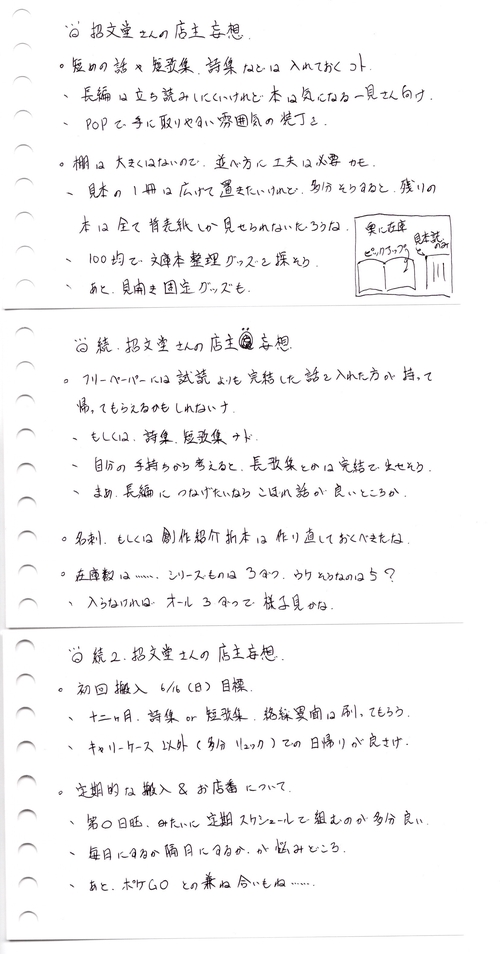 招文堂さんの店主妄想.
。短めの話や短歌集、詩集などは入れておくコト.
、長編は立ち読みしにくいけれど本は気になる一見さん向け.
、POPで手に取りやすい雰囲気の装丁を.
。棚は大きくはないので、並べ方に工夫は必要かも.
、見本の1冊は広げて置きたいけれど、多分そうすると、残りの
本は全て背表紙しか見せられないだろうな.
、100均で文庫本整理グッズを探そう.
、あと、見開き固定グッズも.
奥に在庫
ピックアップ
見本誌
のみ
続.招文堂さんの店主妄想.
。フリーペーパーには試読よりも完結した話を入れた方が持って
帰ってもらえるかもしれないナ.
、もしくは、詩集、短歌集ナド.
、自分の手持ちから考えると、長歌集とかは完結で出せそう.
、まぁ、長編につなげたいならこぼれ話が良いところか.
。名刺、もしくは創作紹介折本は作り直しておくべきだな.
。在庫数は……シリーズものは3ずつ、ウケそうなのは5?
、入らなければオール3ずつで様子見かな.
続2.招文堂さんの店主妄想.
。初回搬入 6/16(日)目標.
、十二ヶ月、詩集or短歌集、裏面は刷ってもらう.
、キャリーケース以外(多分リュック)での日帰りが良さげ.
。定期的な搬入&お店番について.
、第〇日曜、みたいに定期スケジュールで組むのが多分良い.
、毎月にするか隔月にするか、が悩みどころ.
、あと、ポケGOとの兼ね合いもね…….